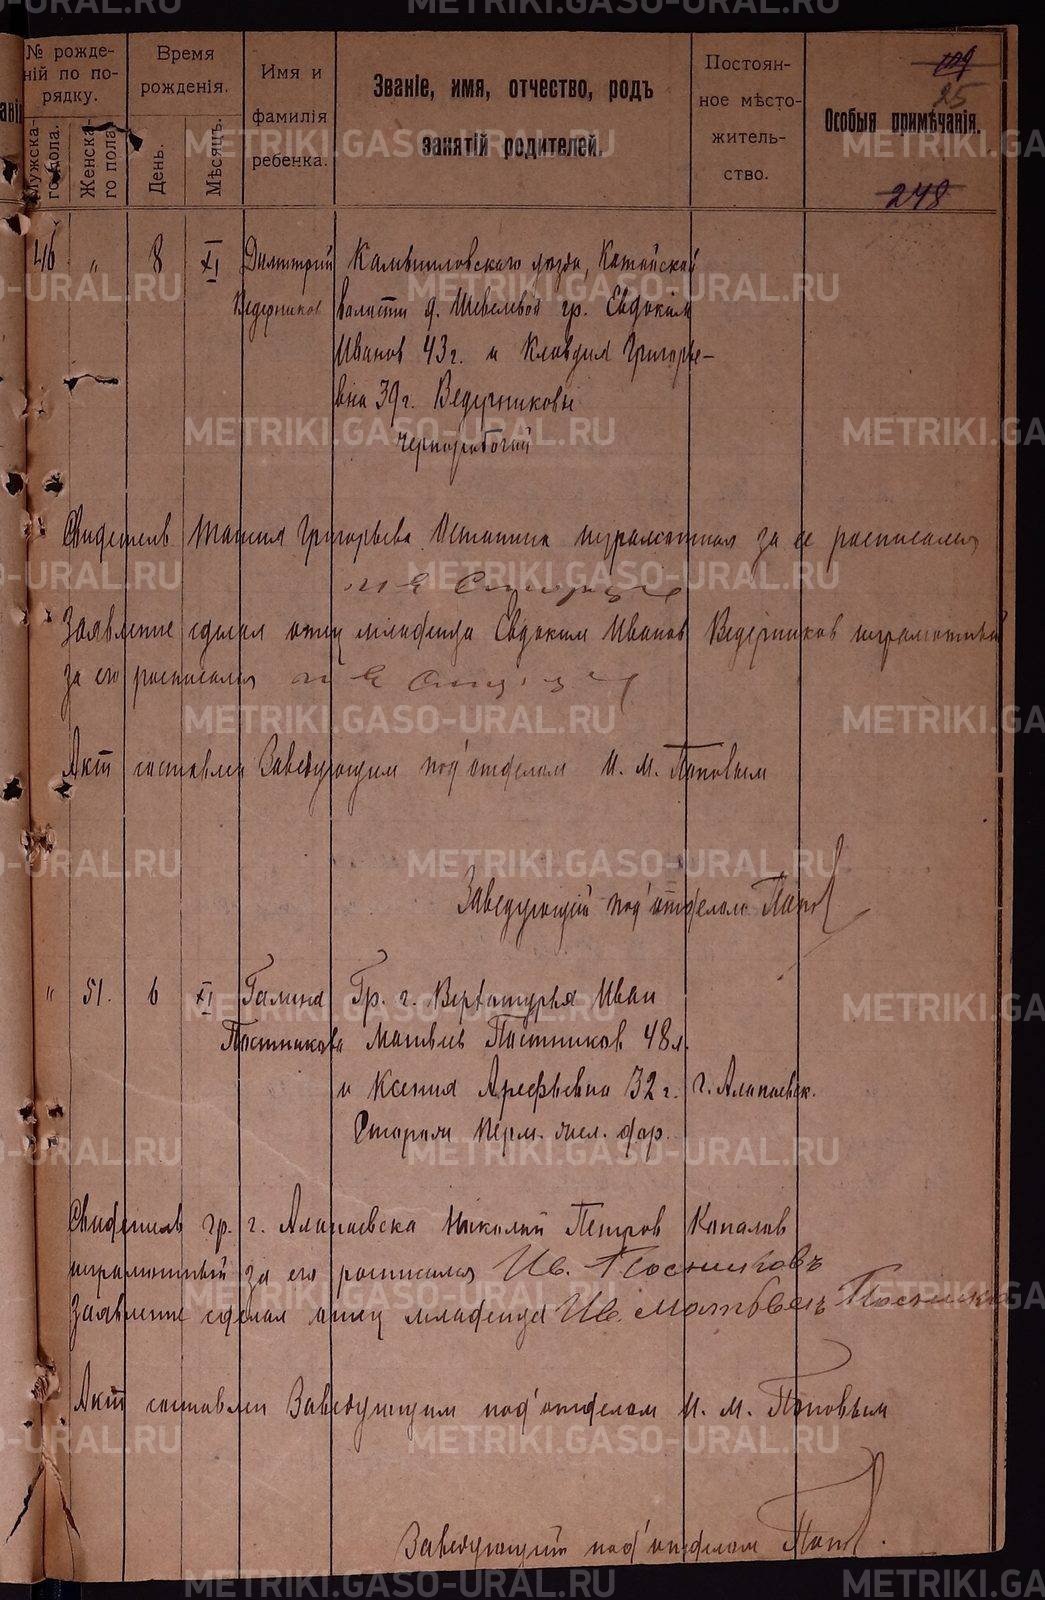 № рожде-
ній по по-
рядку.
Мужска-
го пола.
Женска-
го пола.
Время
рожденія.
День.
Мѣсяцъ.
Имя и
фамилія
ребенка.
Званіе, имя, отчество, родъ
занятій родителей.
Постоян-
ное мѣсто-
житель-
ство.
Особыя примѣчанія.
109
25
248
46 " 8 XI Димитрий Камышловского уезда, Катайской
Ведерников волости д. Шевелевой гр. Евдоким
Иванов 43 г. и Клавдия Григорье-
вна 39 г. Ведерниковы
Чернорабочий
Свидетель Григорьева неграмотная за ее расписался
Заявление сделал отец младенца Евдоким Иванов Ведерников неграмотный
за его расписался
Акт составлен Заведующим под'отделом И. М. Поповым
Заведующий под'отделом Попов
" 51. 6 XI Галина Гр. г. Верхотурья Иван
Постникова Матвеев Постников 48 л.
и Ксения Арефьевна 32 г. г. Алапаевск.
Перм. жел. дор.
Свидетель гр. г. Алапаевска Николай Петров Копалов
неграмотный за его расписался Ив. Посниковъ
Заявление сделал отец младенца Ив. Матвеец Посников
Акт составлен Заведующим под'отделом И. М. Поповым
Заведующий под'отделом Попов.
METRIKI.GASO-URAL.RU